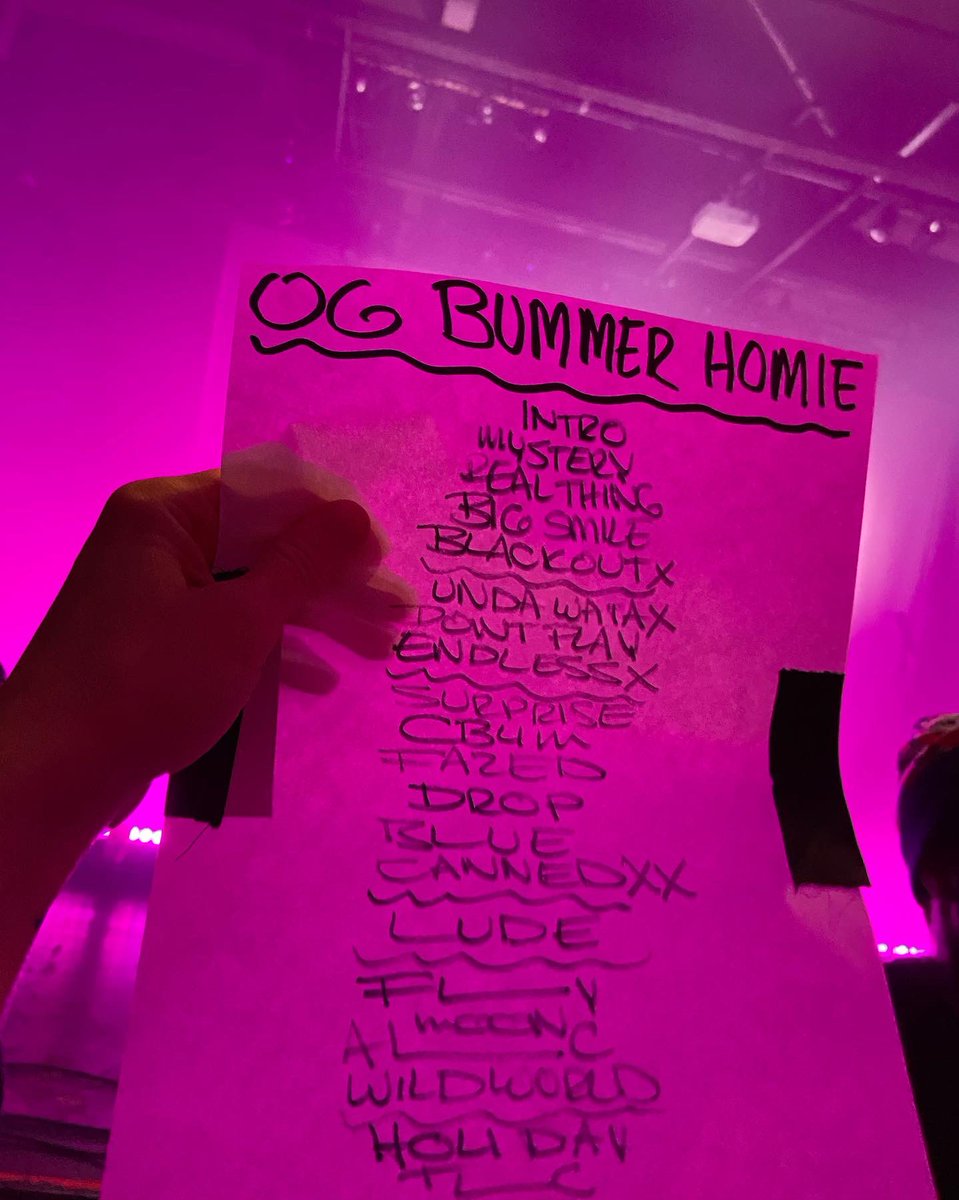 OG BUMMER HOMIE
INTRO
MYSTERY
REAL THING
BIG SMILE
BLACKOUT X
UNDA WATA X
DONT PLAY
ENDLESS X
SURPRISE
CBUM
FAZED
DROP
BLUE
CANNED XX
LUDE
FL Y
MOON
AL C
WILD WORLD
HOLIDAY